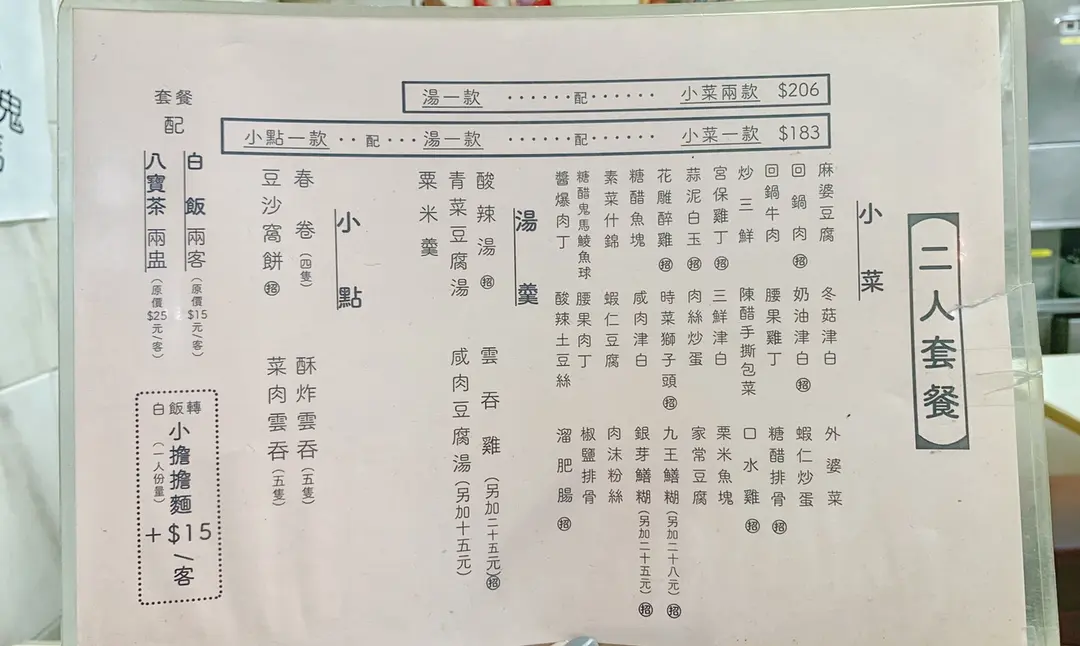 二人套餐
小菜兩款 $206 ······配······ 湯一款
小菜一款 $183 ······配······ 湯一款 ··配··· 小點一款
小菜
麻婆豆腐 冬菇津白 外婆菜
回鍋肉㊙招 奶油津白 招 蝦仁炒蛋
回鍋牛肉 腰果雞丁 糖醋排骨 招
炒三鮮 陳醋手撕包菜 口水雞 招
宮保雞丁 招 三鮮津白 粟米魚塊
蒜泥白玉 招 肉絲炒蛋 家常豆腐
花雕醉雞 招 時菜獅子頭 招 九王鱔糊(另加二十八元) 招
糖醋魚塊 咸肉津白 銀芽鱔糊(另加二十五元) 招
素菜什錦 蝦仁豆腐 肉沫粉絲
糖醋鬼馬鯪魚球 腰果肉丁 椒鹽排骨
醬爆肉丁 酸辣土豆絲 溜肥腸 招
湯羹
酸辣湯 招 雲吞雞(另加二十五元) 招
青菜豆腐湯 咸肉豆腐湯(另加十五元)
粟米羹
小點
春卷(四隻) 酥炸雲吞(五隻)
豆沙窩餅 招 菜肉雲吞(五隻)
套餐
配
白飯兩客(原價$15元/客)
八寶茶兩盅(原價$25元/客)
白飯轉
小擔擔麵
(一人份量)
+$15
/客